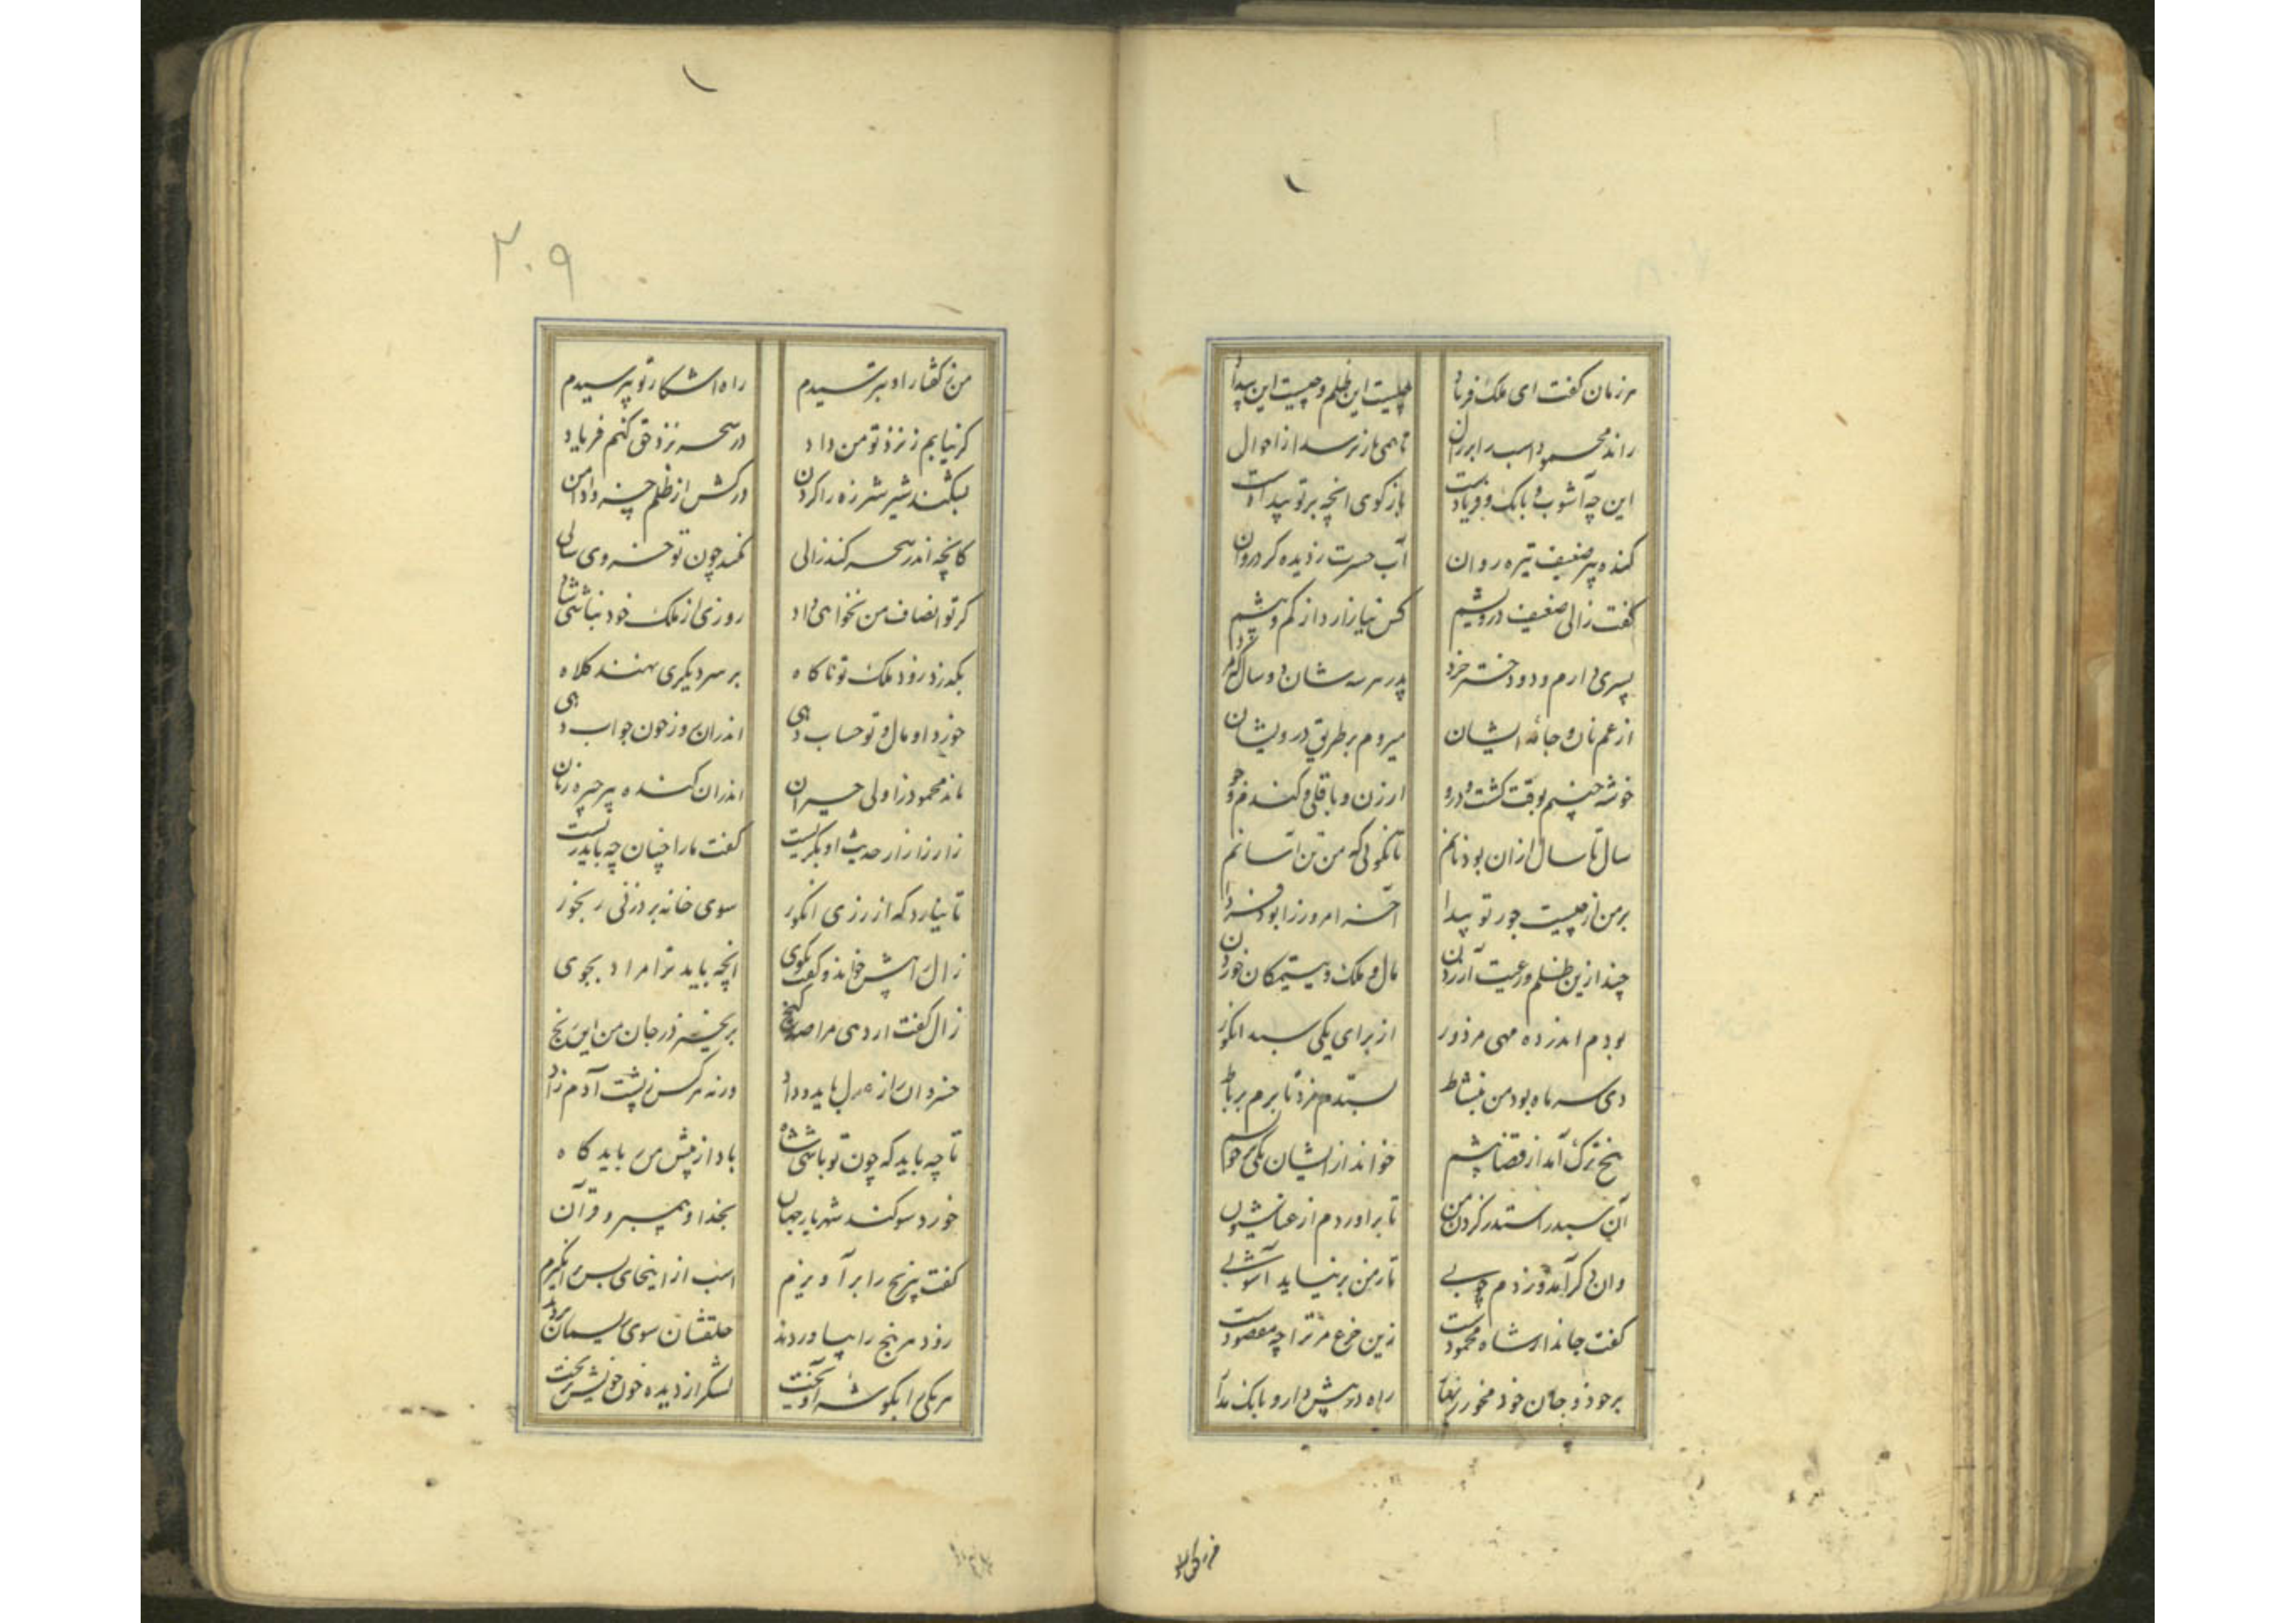 هر زمان گفت ای ملک فریاد چیست این ظلم و چیست این بیداد
راند محمود اسب را بر زن تا همی باز پرسد از احوال
این چه آشوب و بانک و فریادست باز کوی انچه بر تو بیدادست
کنده پیر ضعیف تیره روان آب حسرت ز دیده کرد روان
گفت زالی ضعیف درویشم کس نیازارد از کم و بیشم
پسری دارم و دو دختر خرد پدر هر سه شان دو سال که مرد
از غم نان و جامه ایشان میروم بر طریق درویشان
خوشه چینم بوقت کشت و درو ارزن و باقلی و کندم و جو
سال تا سال ازان بود نانم تا نگوئی که من تن آسانم
بر من از چیست جور تو پیدا آخر امروز را بود فردا
چند ازین ظلم و رعیت آزردن مال و ملک یتیمکان خوردن
بودم اندر ده مهی مزدور از برای یکی سبد انکور
دی سر ماه بود من بنشاط بستدم مزد تا برم برباط
پنج ترک آمد از قضا پیشم خواند از ایشان یکی سر خویشم
آن سبد را ستد ز کردن من تا براوردم از عنا شیون
وان دگر آمد و زدم چوبی تا ز من برنیاید آشوبی
گفت جاندار شاه محمودست زین فزع مر ترا چه مقصودست
بر خود و جان خود مخور زنهار راه در پیش دار و بانک مدار
من ز گفتار او بترسیدم راه اشکار تو بپرسیدم
کر نیابم ز نزد تو من داد در سحر نزد حق کنم فریاد
بشکند شیر شرزه را کردن درکش از ظلم خسروا دامن
کانچه اندر سحر کند زالی نکند چون تو خسروی سالی
کر تو انصاف من نخواهی داد روزی از ملک خود نباشی شاد
بگذرد زود ملک تو ناکاه بر سر دیکری نهند کلاه
خورد او مال و تو حساب دهی اندران روز خون جواب دهی
ماند محمود زاولی حیران اندران کنده پیر چیره زبان
زار زار از حدیث او بگریست گفت ما را چنان چه باید زیست
تا نیارد که از رزی انکور سوی خانه برد زنی رنجور
زال را پیش خواند و گفت بکوی آنچه باید ترا مراد بجوی
زال گفت ار دهی مرا صد گنج برنخیزد ز جان من این رنج
خسروان را ز عدل باید و داد ورنه هر کس ز پشت آدم زاد
تا چه باید که چون تو باشی شاه باد از پیش من باید کاه
خورد سوکند شهریار جهان بخدا و پیمبر و قرآن
گفت هر پنج را برآویزم اسب از اینجای پس برانگیزم
زود هر پنج را بیاوردند حلقشان سوی ریسمان بردند
هر یکی را بکوشه آویخت لشکر از دیده خون خویش بریخت
۲۰۹